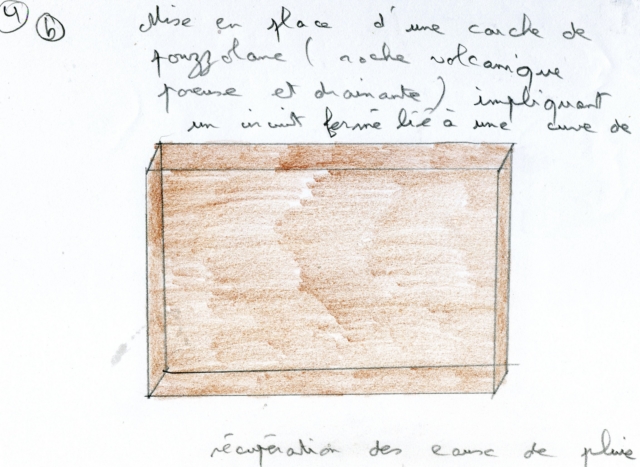 4 b Mise en place d'une couche de
pouzzolane (roche volcanique
poreuse et drainante) impliquant
un circuit fermé lié à une cuve de
récupération des eaux de pluie